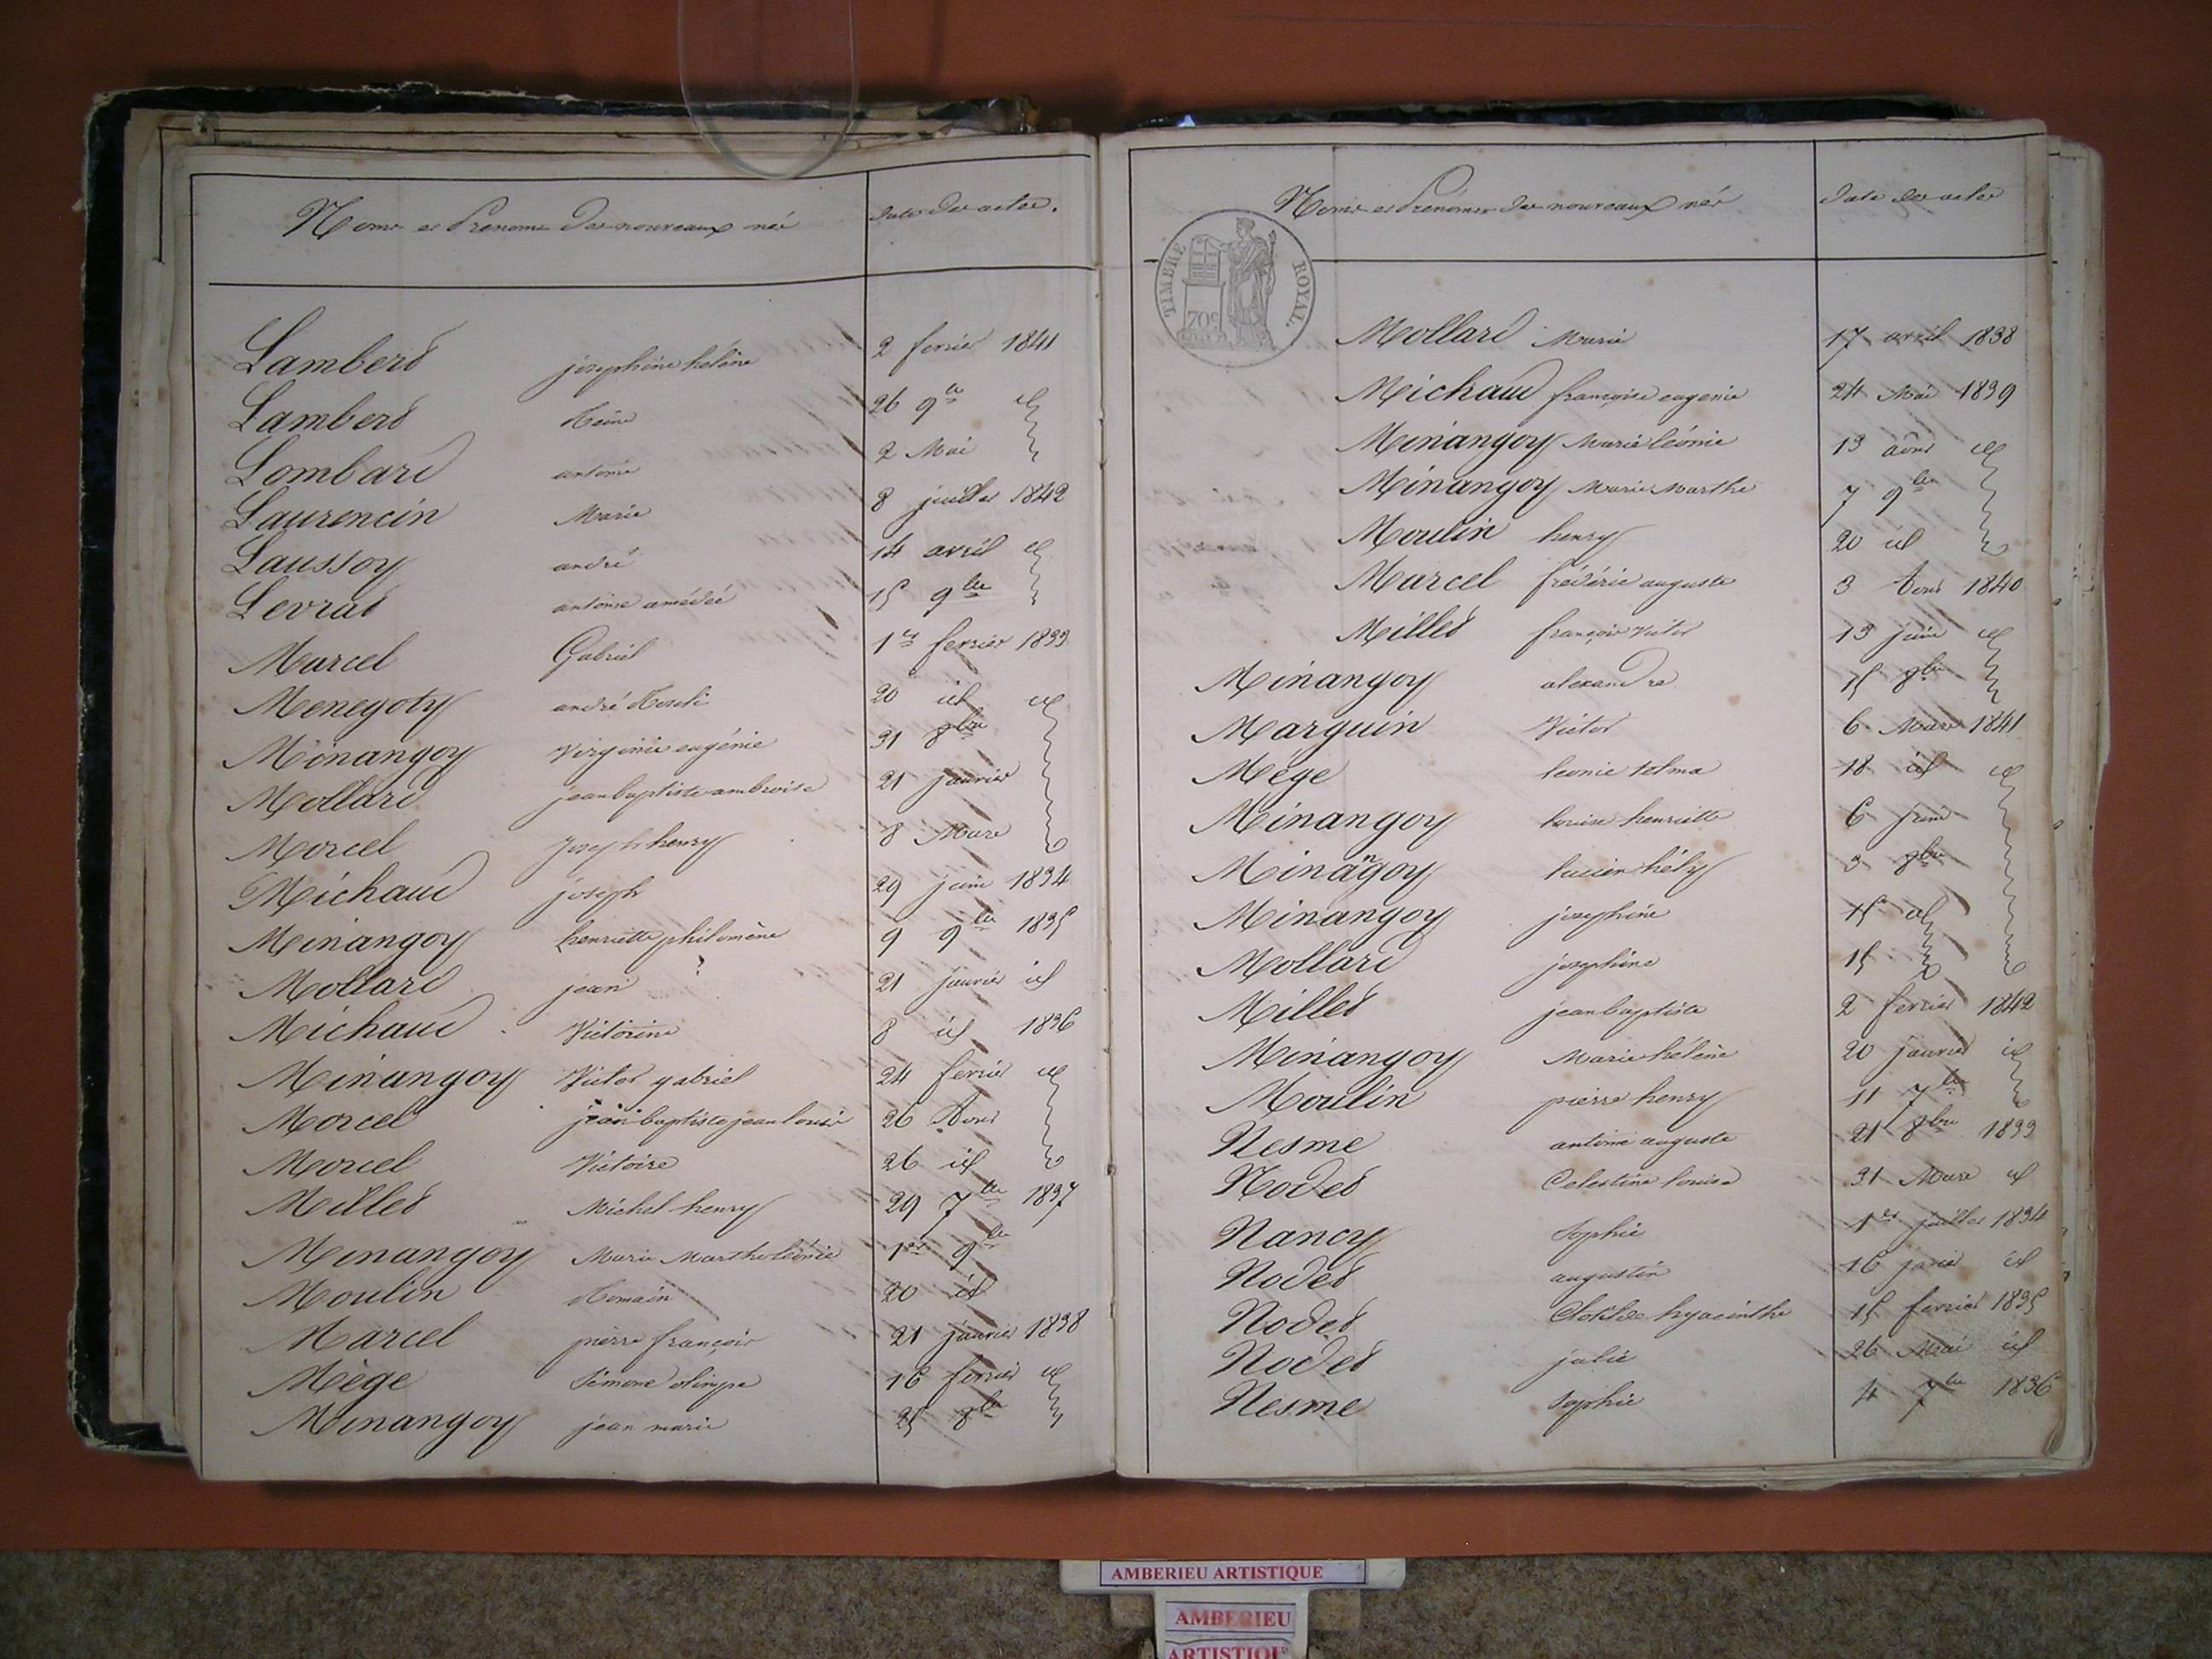 Noms et Prénoms des nouveaux nés
Date des actes.
Lambert josephine hélène 2 fevrier 1841
Lambert Reine 26 9bre id
Lombard antonie 2 Mai
Laurencin Marie 8 juillet 1842
Laussoy andré 14 avril id
Levrat antoine amédée 15 9bre
Marcel Gabriel 1er fevrier 1833
Menegoty andré 20 id id
Minangoy Virginie eugénie 31 8bre
Mollard jean baptiste ambroise 21 janvier
Morcel Joseph henry 8 Mars
Michaud joseph 29 juin 1834
Minangoy henriette philomène 9 9bre 1835
Mollard jean 21 janvier id
Michaud Victorine 8 id 1836
Minangoy Victor gabriel 24 fevrier id
Morcel jean baptiste jean louis 26 Aout
Morcel Victoire 26 id
Millet Michel henry 29 7bre 1837
Minangoy Marie Marthe léonie 1er 9bre
Moulin Romain 20 id
Marcel pierre françois 21 janvier 1838
Mège Simone olimpe 16 fevrier id
Minangoy jean marie 25 8bre
Noms et Prénoms des nouveaux nés
Date des actes
TIMBRE ROYAL.
70c
Mollard Marie 17 avril 1838
Michaud françoise eugenie 24 Mai 1839
Minangoy Marie léonie 13 aout id
Minangoy Marie Marthe 7 9bre
Moulin henry 20 id
Marcel fréderic auguste 3 Aout 1840
Millet françois Victor 13 juin id
Minangoy alexandre 15 8bre
Marguin Victor 6 Mars 1841
Mège leonie telma 18 id id
Minangoy louise henriette 6 juin
Minangoy lucien hély 3 8bre
Minangoy josephine 15 id
Mollard josephine 15
Millet jean baptiste 2 fevrier 1842
Minangoy Marie hélène 20 janvier id
Moulin pierre henry 11 7bre
Nesme antoine auguste 21 8bre 1833
Nodet Celestine louise 31 Mars id
Nancy Sophie 1er juillet 1834
Nodet augustin 16 janvier id
Nodet Clotilde hyacinthe 15 fevrier 1835
Nodet julie 26 Mai id
Nesme Sophie 4 7bre 1836
AMBERIEU ARTISTIQUE
AMBERIEU
ARTISTIQU